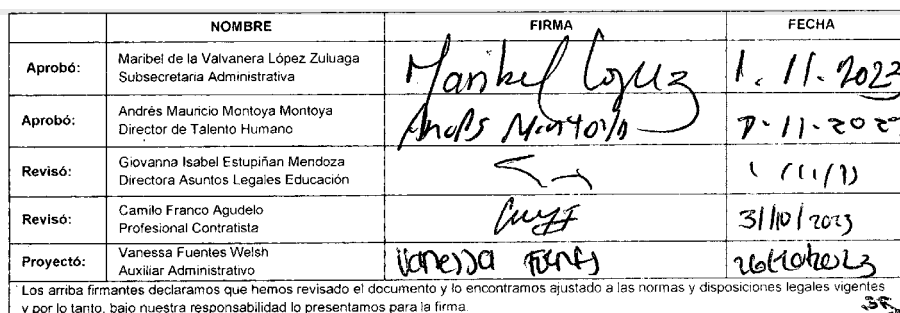 NOMBRE FIRMA FECHA
Aprobó: Maribel de la Valvanera López Zuluaga
Subsecretaria Administrativa
Maribel López 1.11.2023
Aprobó: Andrés Mauricio Montoya Montoya
Director de Talento Humano
Andrés Montoya
Revisó: Giovanna Isabel Estupiñan Mendoza
Directora Asuntos Legales Educación
Revisó: Camilo Franco Agudelo
Profesional Contratista
31/10/2023
Proyectó: Vanessa Fuentes Welsh
Auxiliar Administrativo
Vanessa Fuentes
Los arriba firmantes declaramos que hemos revisado el documento y lo encontramos ajustado a las normas y disposiciones legales vigentes
y por lo tanto, bajo nuestra responsabilidad lo presentamos para la firma.